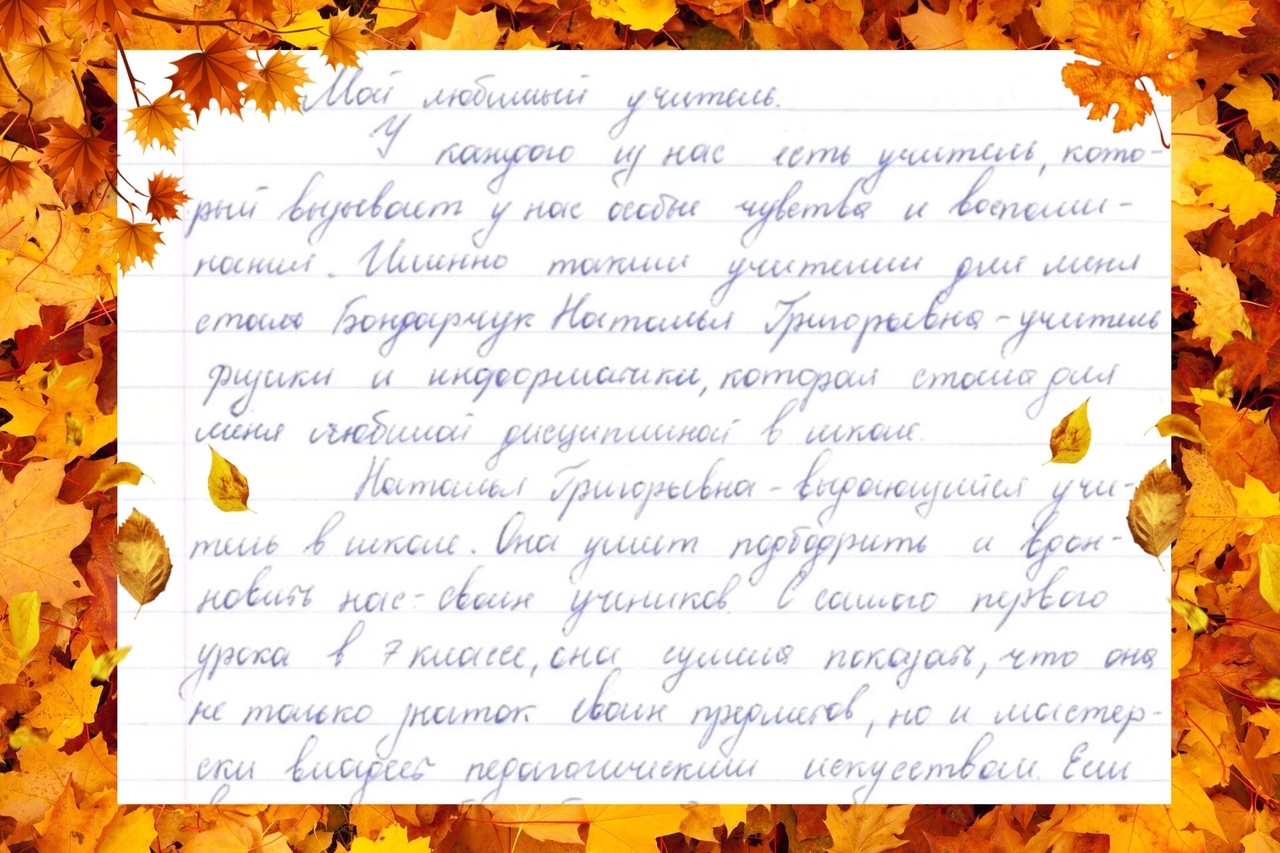 Мой любимый учитель.
У каждого из нас есть учитель, кото-
рый вызывает у нас особые чувства и воспоми-
нания. Именно таким учителем для меня
стала Бондарчук Наталья Григорьевна - учитель
физики и информатики, которая стала для
меня любимой дисциплиной в школе.
Наталья Григорьевна - выдающийся учи-
тель в школе. Она умеет подбодрить и вдох-
новить нас - своих учеников. С самого первого
урока в 7 классе, она сумела показать, что она
не только знаток своих предметов, но и мастер-
ски владеет педагогическим искусством. Если